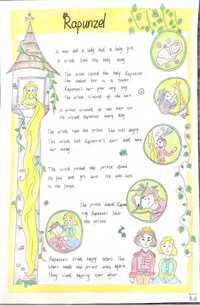 Rapunzel
A man and a lady had a baby girl.
A witch took the baby away.
The witch called the baby Rapunzel.
She locked her in a tower.
Rapunzel's hair grew very long.
The witch climbed up the hair.
A prince climbed up the hair too.
He visited Rapunzel every day.
The witch saw the prince. She was angry.
The witch cut Rapunzel's hair and sent
her away.
The witch pushed the prince down.
He fell and got hurt. He was lost
in the forest.
The prince heard Rapunzel
sing. Rapunzel saw
the prince.
Rapunzel cried happy tears. The
tears made the prince well again.
They lived happily ever after.